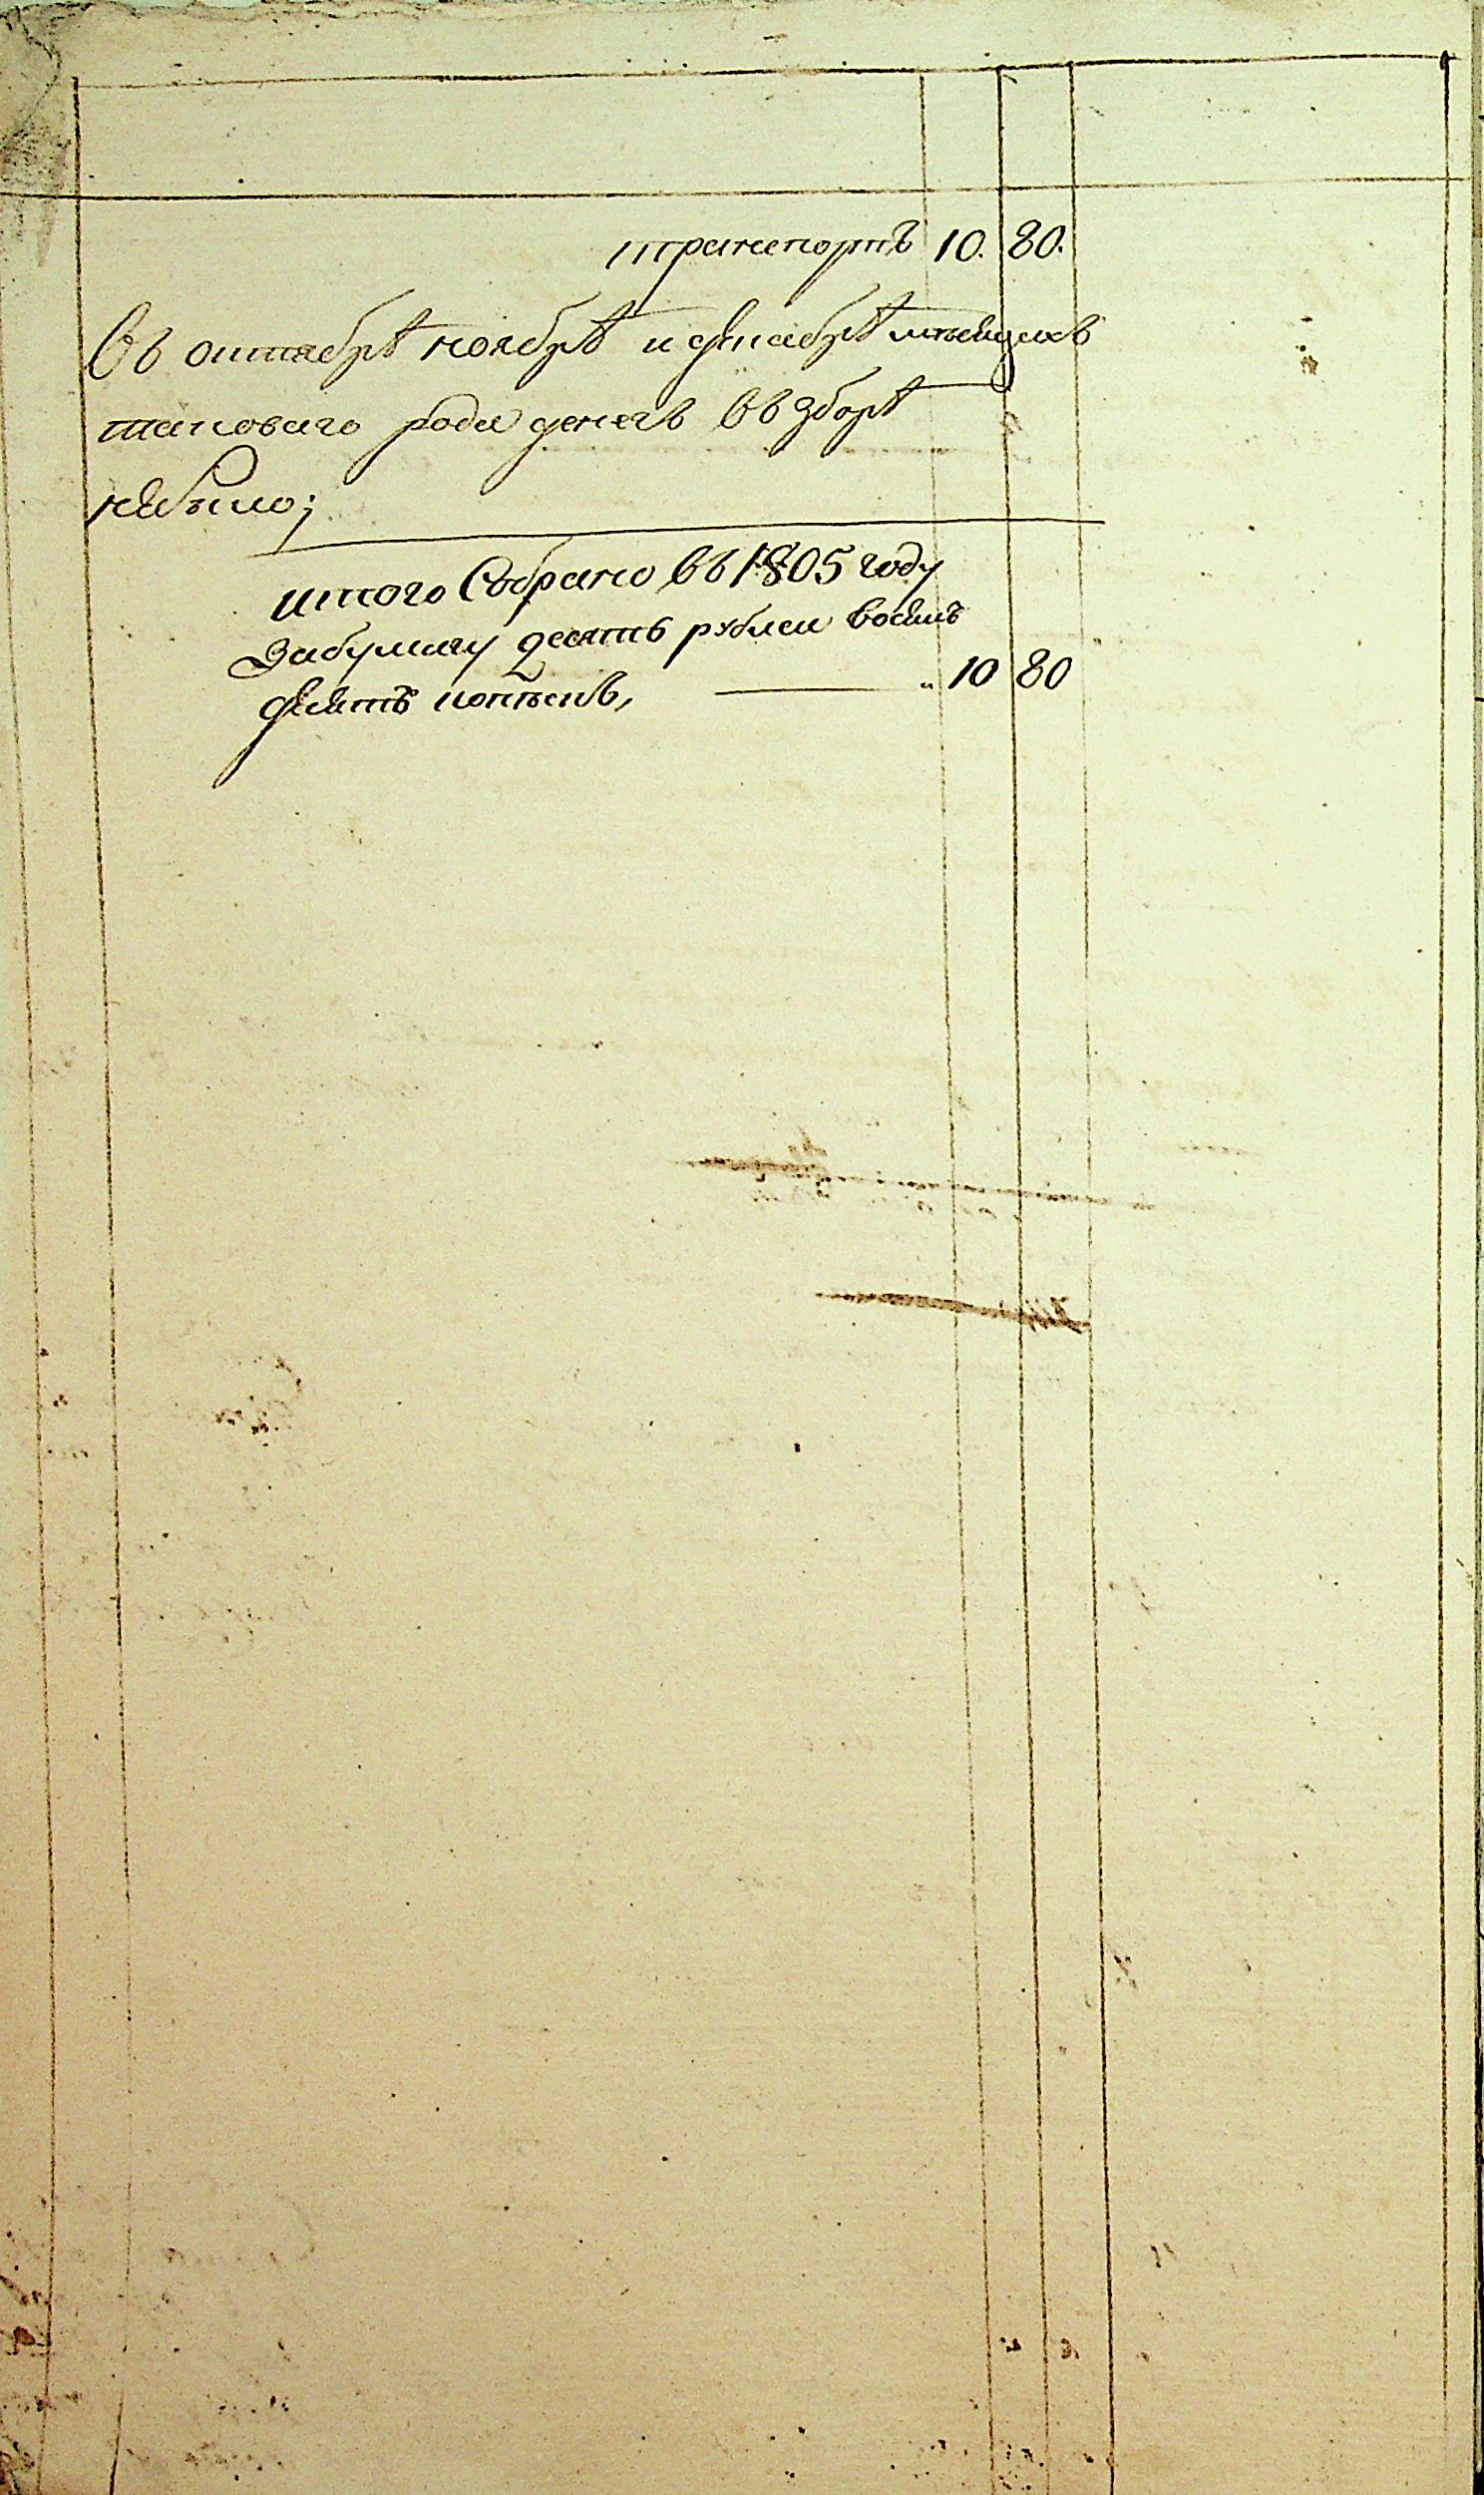 транспортъ 10. 80.
Въ октябрѣ ноябрѣ и декабрѣ мѣсяцахъ
таковаго рода денегъ въ зборѣ
небыло;
итого собрано въ 1805 году
забумагу десять рублей восемь
десятъ копѣекъ, 10 80